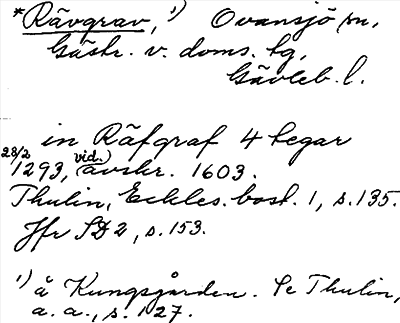 *Rävgrav, ¹) Ovansjö sn,
Gästr. v. doms. tg,
Gävleb. l.
in Räfgraf 4 tegar
28/2 1293, vid. avskr. 1603.
Thulin, Eckles. bost. 1, s. 135.
Jfr SD 2, s. 153.
¹) å Kungsgården. Se Thulin,
a. a., s. 127.